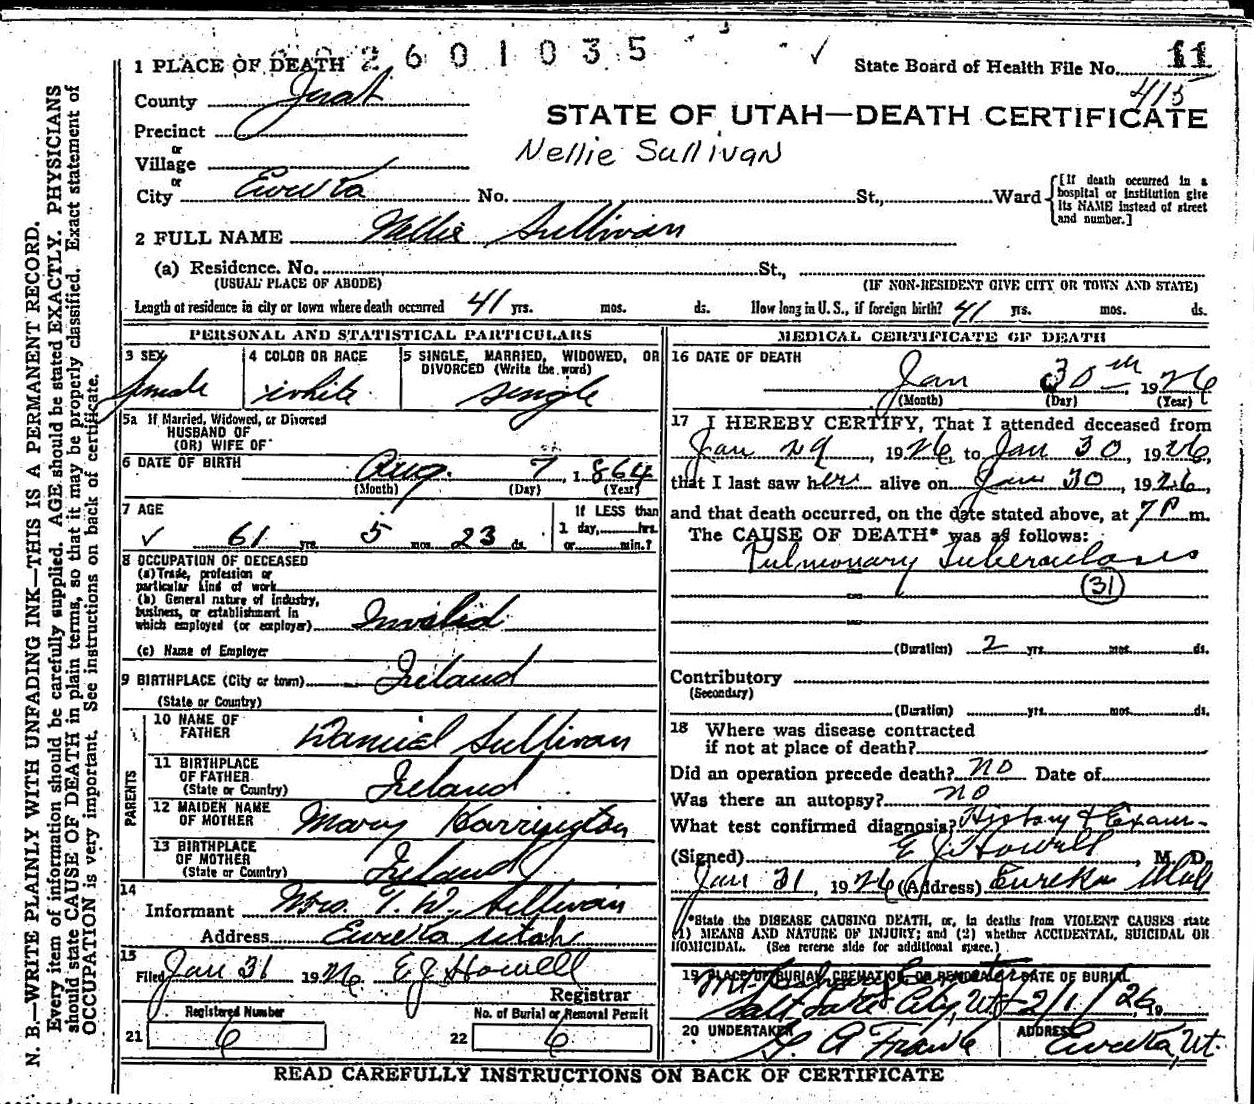 2601035
1 PLACE OF DEATH
State Board of Health File No. 11
415
County Juab
STATE OF UTAH—DEATH CERTIFICATE
Precinct
or
Village
Nellie Sullivan
or
City Eureka No. St., Ward
[If death occurred in a hospital or institution give its NAME instead of street and number.]
2 FULL NAME Nellie Sullivan
(a) Residence. No. St.,
(USUAL PLACE OF ABODE) (IF NON-RESIDENT GIVE CITY OR TOWN AND STATE)
Length of residence in city or town where death occurred 41 yrs. mos. ds. How long in U.S., if foreign birth? 41 yrs. mos. ds.
PERSONAL AND STATISTICAL PARTICULARS
3 SEX female
4 COLOR OR RACE white
5 SINGLE, MARRIED, WIDOWED, OR DIVORCED (Write the word) single
5a If Married, Widowed, or Divorced
HUSBAND OF
(OR) WIFE OF
6 DATE OF BIRTH Aug. 7, 1864
(Month) (Day) (Year)
7 AGE
✓ 61 yrs. 5 mos. 23 ds.
If LESS than
1 day, hrs.
or min.?
8 OCCUPATION OF DECEASED
(a) Trade, profession or
particular kind of work
(b) General nature of industry,
business, or establishment in
which employed (or employer) Invalid
(c) Name of Employer
9 BIRTHPLACE (City or town) Ireland
(State or Country)
PARENTS
10 NAME OF FATHER Daniel Sullivan
11 BIRTHPLACE OF FATHER
(State or Country) Ireland
12 MAIDEN NAME OF MOTHER Mary Harrington
13 BIRTHPLACE OF MOTHER
(State or Country) Ireland
14
Informant Mrs. T. W. Sullivan
Address Eureka Utah
15
Filed Jan 31 1926 E J Howell
Registrar
Registered Number
21 6
No. of Burial or Removal Permit
22 6
MEDICAL CERTIFICATE OF DEATH
16 DATE OF DEATH
Jan 30th 1926
(Month) (Day) (Year)
17 I HEREBY CERTIFY, That I attended deceased from
Jan 29, 1926, to Jan 30, 1926,
that I last saw her alive on Jan 30, 1926,
and that death occurred, on the date stated above, at 7P m.
The CAUSE OF DEATH* was as follows:
Pulmonary Tuberculosis
31
(Duration) 2 yrs. mos. ds.
Contributory
(Secondary)
(Duration) yrs. mos. ds.
18 Where was disease contracted
if not at place of death?
Did an operation precede death? no Date of
Was there an autopsy? no
What test confirmed diagnosis? History & Exam-
(Signed) E J Howell, M. D.
Jan 31, 1926 (Address) Eureka Utah
*State the DISEASE CAUSING DEATH, or, in deaths from VIOLENT CAUSES state
(1) MEANS AND NATURE OF INJURY; and (2) whether ACCIDENTAL, SUICIDAL OR
HOMICIDAL. (See reverse side for additional space.)
19 PLACE OF BURIAL, CREMATION, OR REMOVAL DATE OF BURIAL
Mt.
Salt Lake City, Ut 2/1/26 19
20 UNDERTAKER ADDRESS
Eureka, Ut.
READ CAREFULLY INSTRUCTIONS ON BACK OF CERTIFICATE
N. B.—WRITE PLAINLY WITH UNFADING INK—THIS IS A PERMANENT RECORD.
Every item of information should be carefully supplied. AGE should be stated EXACTLY. PHYSICIANS
should state CAUSE OF DEATH in plain terms, so that it may be properly classified. Exact statement of
OCCUPATION is very important. See instructions on back of certificate.